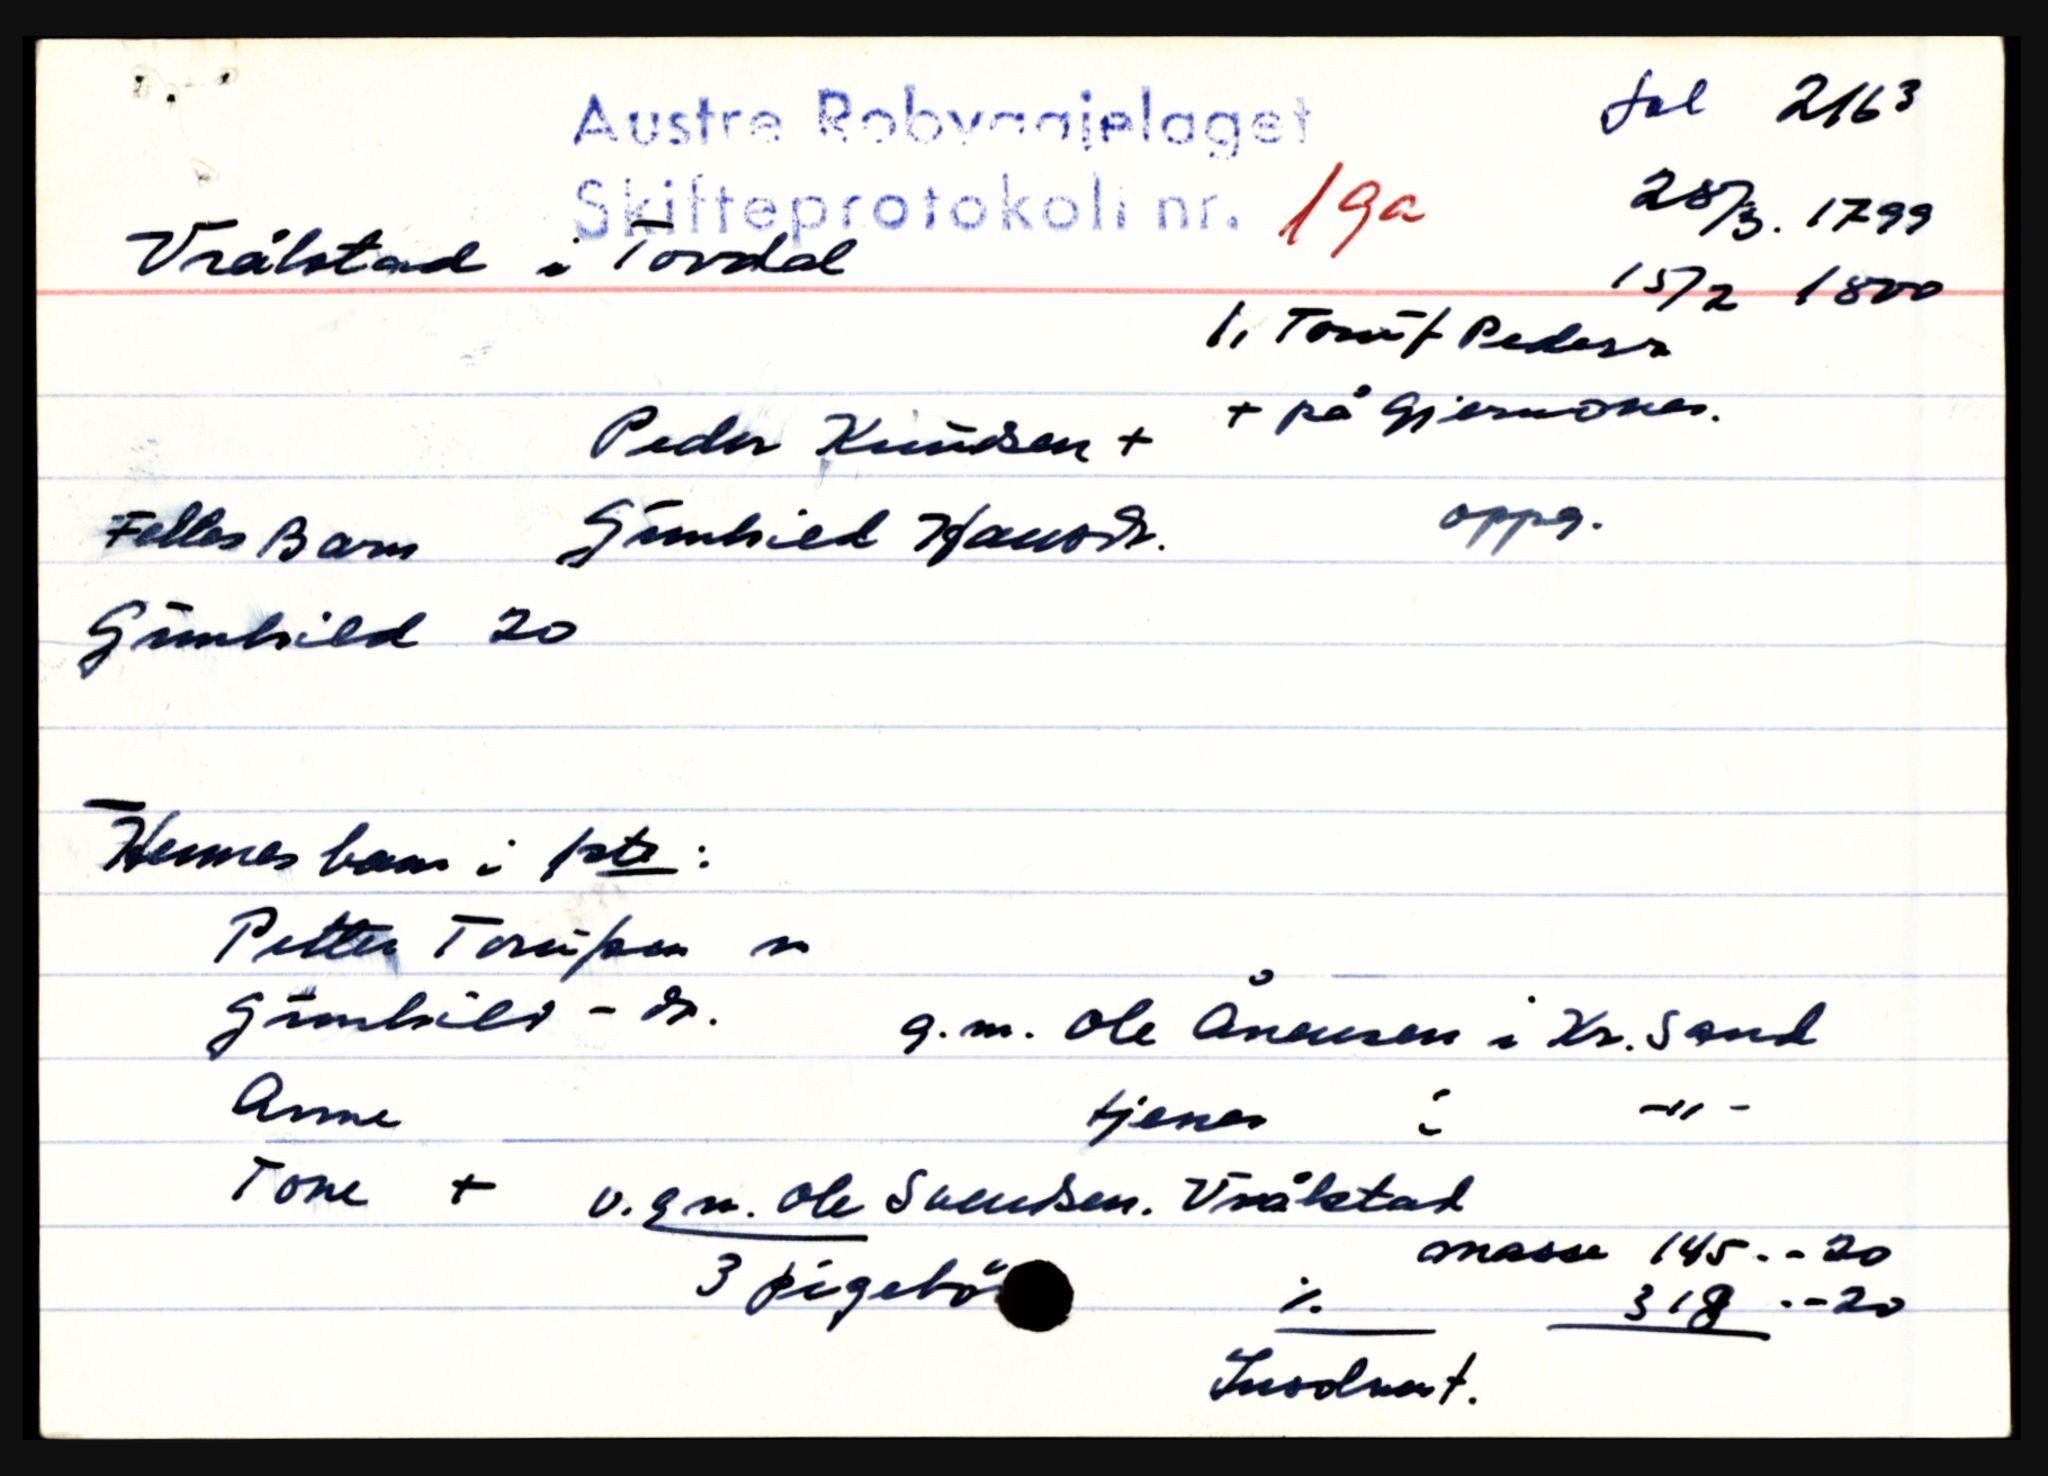 Austre Robyggjelaget
Skifteprotokoll nr. 19a
fol 216 3
28/3. 1799
15/2 1800
Vrålstad i Tovdal
1, Toruf Peders
+ på Gjermones.
Peder Knudsen +
Felles Barn Gunhild Hansdr. oppg.
Gunhild 20
Hennes barn i 1ste :
Petter Torufsen m
Gunhild - dr. g.m. Ole Ånensen i Kr. Sand
Anne tjener i -"-
Tone + v.g.m. Ole Svendsen. Vrålstad
3 pigebö
masse 145.-20
./. 318.-20
Insolvent.